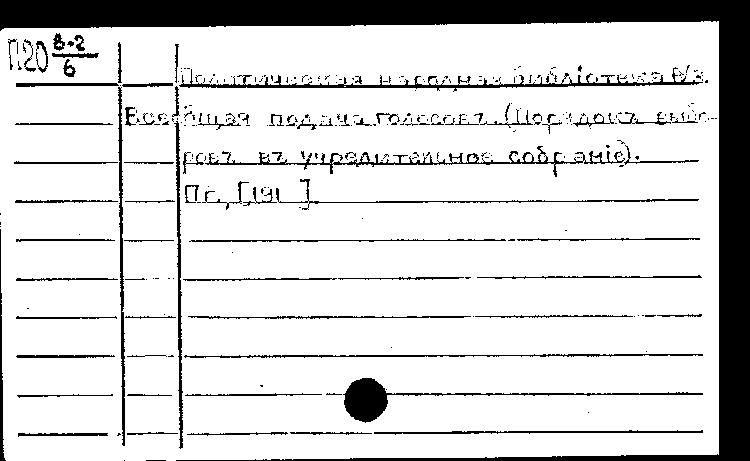 П.20 8-2/6
Политическая народная библіотека в/з.
Всеобщая подача голосовъ. (Порядокъ выбо-
ровъ въ учредительное собраніе).
Пг., [191 ].